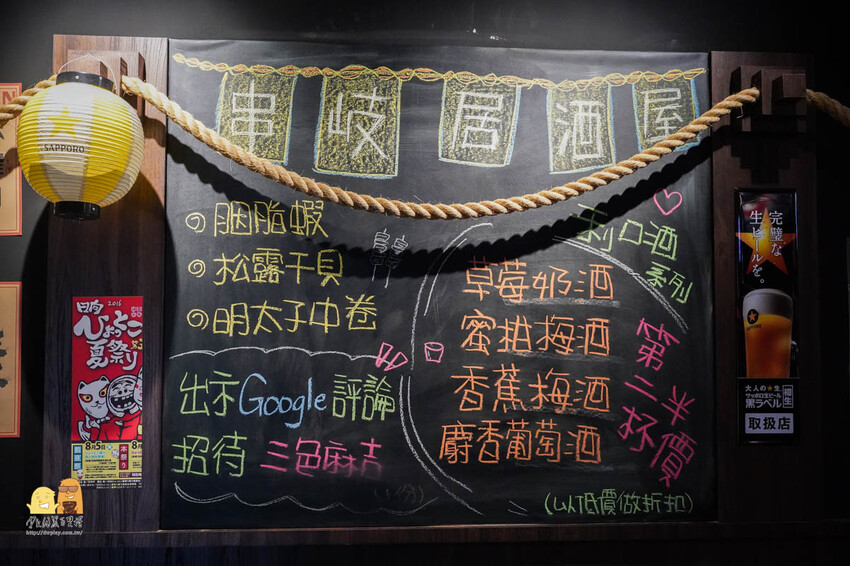 串岐居酒屋
胭脂蝦
松露干貝
明太子中卷
出示Google評論
招待 三色麻吉
(1份)
利口酒
系列
草莓奶酒
蜜柑梅酒
香蕉梅酒
麝香葡萄酒
第二杯半價
(以低價做折扣)
SAPPORO
日向
2016
ひょっとこ
夏祭り
8月5日
本祭り
完璧な
生ビールを。
大人の★生
サッポロ生ビール
黒ラベル
樽生
取扱店
http://dopixy.com.tw/